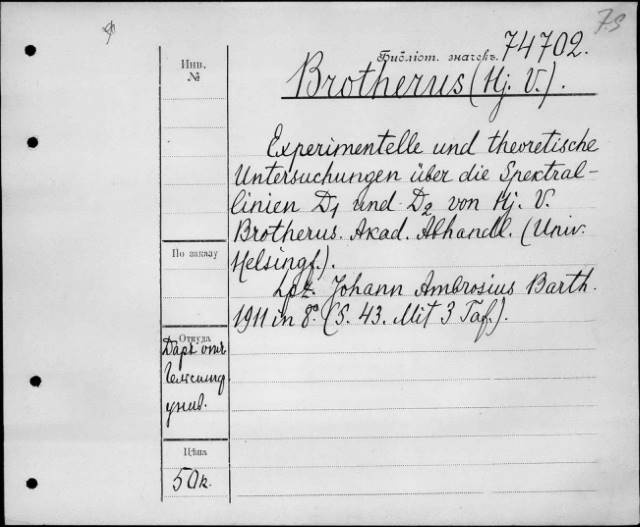 7.S
Библіот. значекъ. 74702.
Инв.
№
Brotherus (Hj. V.).
Experimentelle und theoretische
Untersuchungen über die Spektral-
linien D1 und D2 von Hj. V.
Brotherus. Akad. Abhandl. (Univ.
Helsingf.).
Lpz. Johann Ambrosius Barth.
1911 in 8º. (S. 43. Mit 3 Taf.).
По заказу
Откуда
Даръ отъ
Гельсингф.
унив.
Цѣна
50к.